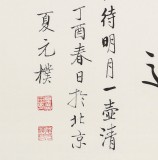 待明月一壶清
丁酉春日於北京
夏元樸